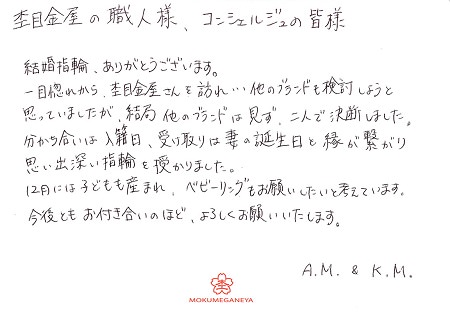 杢目金屋の職人様、コンシェルジュの皆様
結婚指輪、ありがとうございます。
一目惚れから、杢目金屋さんを訪れ…他のブランドも検討しようと
思っていましたが、結局他のブランドは見ず、二人で決断しました。
分かち合いは入籍日、受け取りは妻の誕生日と縁が繋がり
思い出深い指輪を授かりました。
12月には子どもも産まれ、ベビーリングもお願いしたいと考えています。
今後ともお付き合いのほど、よろしくお願いいたします。
A.M. & K.M.
MOKUMEGANEYA